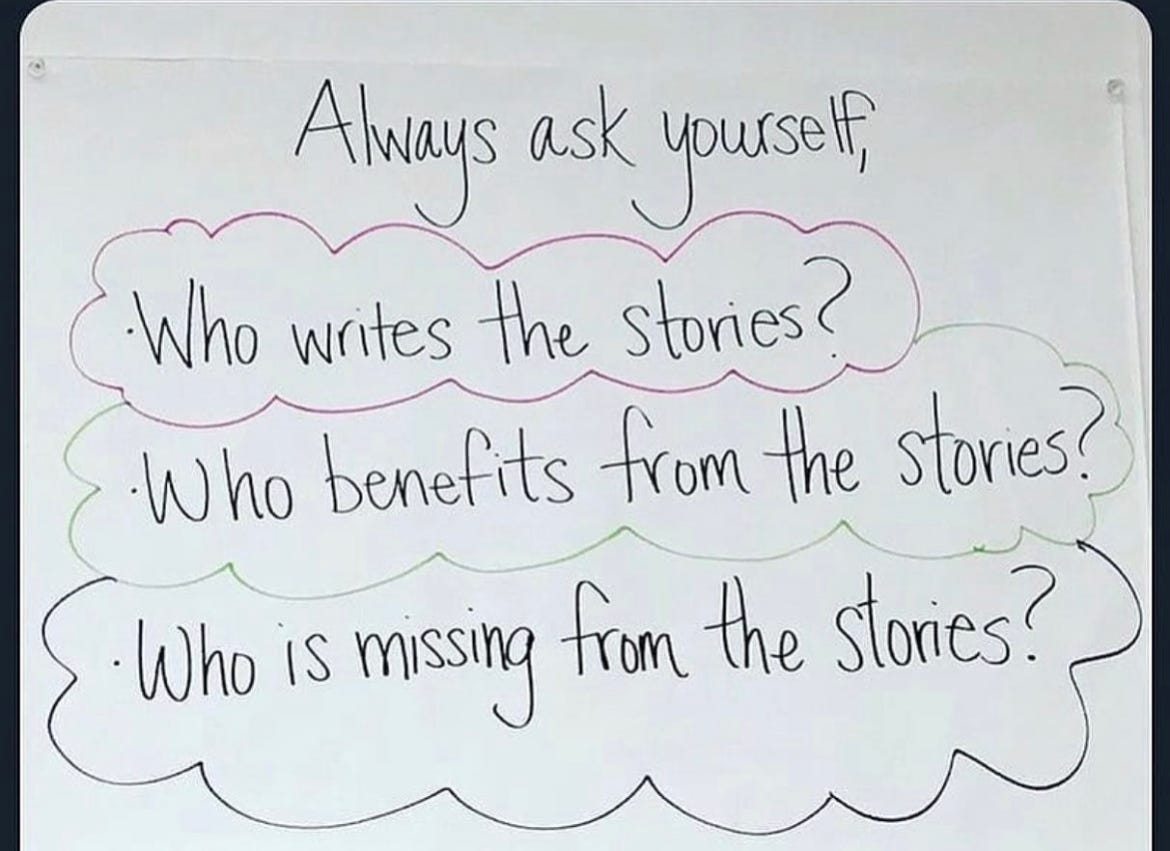 Always ask yourself,
·Who writes the stories?
·Who benefits from the stories?
·Who is missing from the stories?